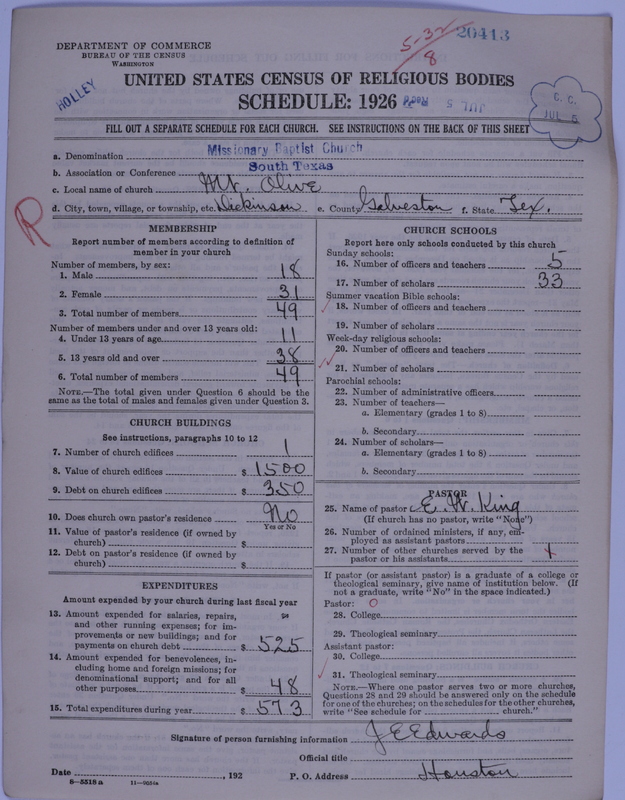 5-32
8
20413
DEPARTMENT OF COMMERCE
BUREAU OF THE CENSUS
WASHINGTON
HOLLEY
UNITED STATES CENSUS OF RELIGIOUS BODIES
SCHEDULE: 1926
C. C.
JUL 5
FILL OUT A SEPARATE SCHEDULE FOR EACH CHURCH. SEE INSTRUCTIONS ON THE BACK OF THIS SHEET
a. Denomination Missionary Baptist Church
b. Association or Conference South Texas
c. Local name of church Mt. Olive
d. City, town, village, or township, etc. Dickinson e. County Galveston f. State Tex.
R
MEMBERSHIP
Report number of members according to definition of
member in your church
Number of members, by sex:
1. Male 18
2. Female 31
3. Total number of members 49
Number of members under and over 13 years old:
4. Under 13 years of age 11
5. 13 years old and over 38
6. Total number of members 49
NOTE.—The total given under Question 6 should be the
same as the total of males and females given under Question 3.
CHURCH BUILDINGS
See instructions, paragraphs 10 to 12
7. Number of church edifices 1
8. Value of church edifices $ 1500
9. Debt on church edifices $ 350
10. Does church own pastor's residence No
Yes or No
11. Value of pastor's residence (if owned by
church) $
12. Debt on pastor's residence (if owned by
church) $
EXPENDITURES
Amount expended by your church during last fiscal year
13. Amount expended for salaries, repairs,
and other running expenses; for im-
provements or new buildings; and for
payments on church debt $ 525
14. Amount expended for benevolences, in-
cluding home and foreign missions; for
denominational support; and for all
other purposes $ 48
15. Total expenditures during year $ 573
CHURCH SCHOOLS
Report here only schools conducted by this church
Sunday schools:
16. Number of officers and teachers 5
17. Number of scholars 33
Summer vacation Bible schools:
18. Number of officers and teachers
19. Number of scholars
Week-day religious schools:
20. Number of officers and teachers
21. Number of scholars
Parochial schools:
22. Number of administrative officers
23. Number of teachers—
a. Elementary (grades 1 to 8)
b. Secondary
24. Number of scholars—
a. Elementary (grades 1 to 8)
b. Secondary
PASTOR
25. Name of pastor E. W. King
(If church has no pastor, write "None")
26. Number of ordained ministers, if any, em-
ployed as assistant pastors
27. Number of other churches served by the
pastor or his assistants 1
If pastor (or assistant pastor) is a graduate of a college or
theological seminary, give name of institution below. (If
not a graduate, write "No" in the space indicated.)
Pastor: 0
28. College
29. Theological seminary
Assistant pastor:
30. College
31. Theological seminary
NOTE.—Where one pastor serves two or more churches,
Questions 28 and 29 should be answered only on the schedule
for one of the churches; on the schedules for the other churches,
write "See schedule for church."
Signature of person furnishing information J E Edwards
Official title
Date , 192 P. O. Address Houston
8-5518a 11-9054a